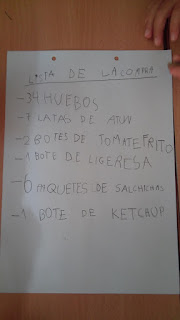 LISTA DE LACOMPRA
-34 HUEBOS
-7 LATAS DE ATUN
-2 BOTES DE TOMATE FRITO
-1 BOTE DE LIGERESA
-6 PAQUETES DE SALCHICHAS
-1 BOTE DE KETCHUP